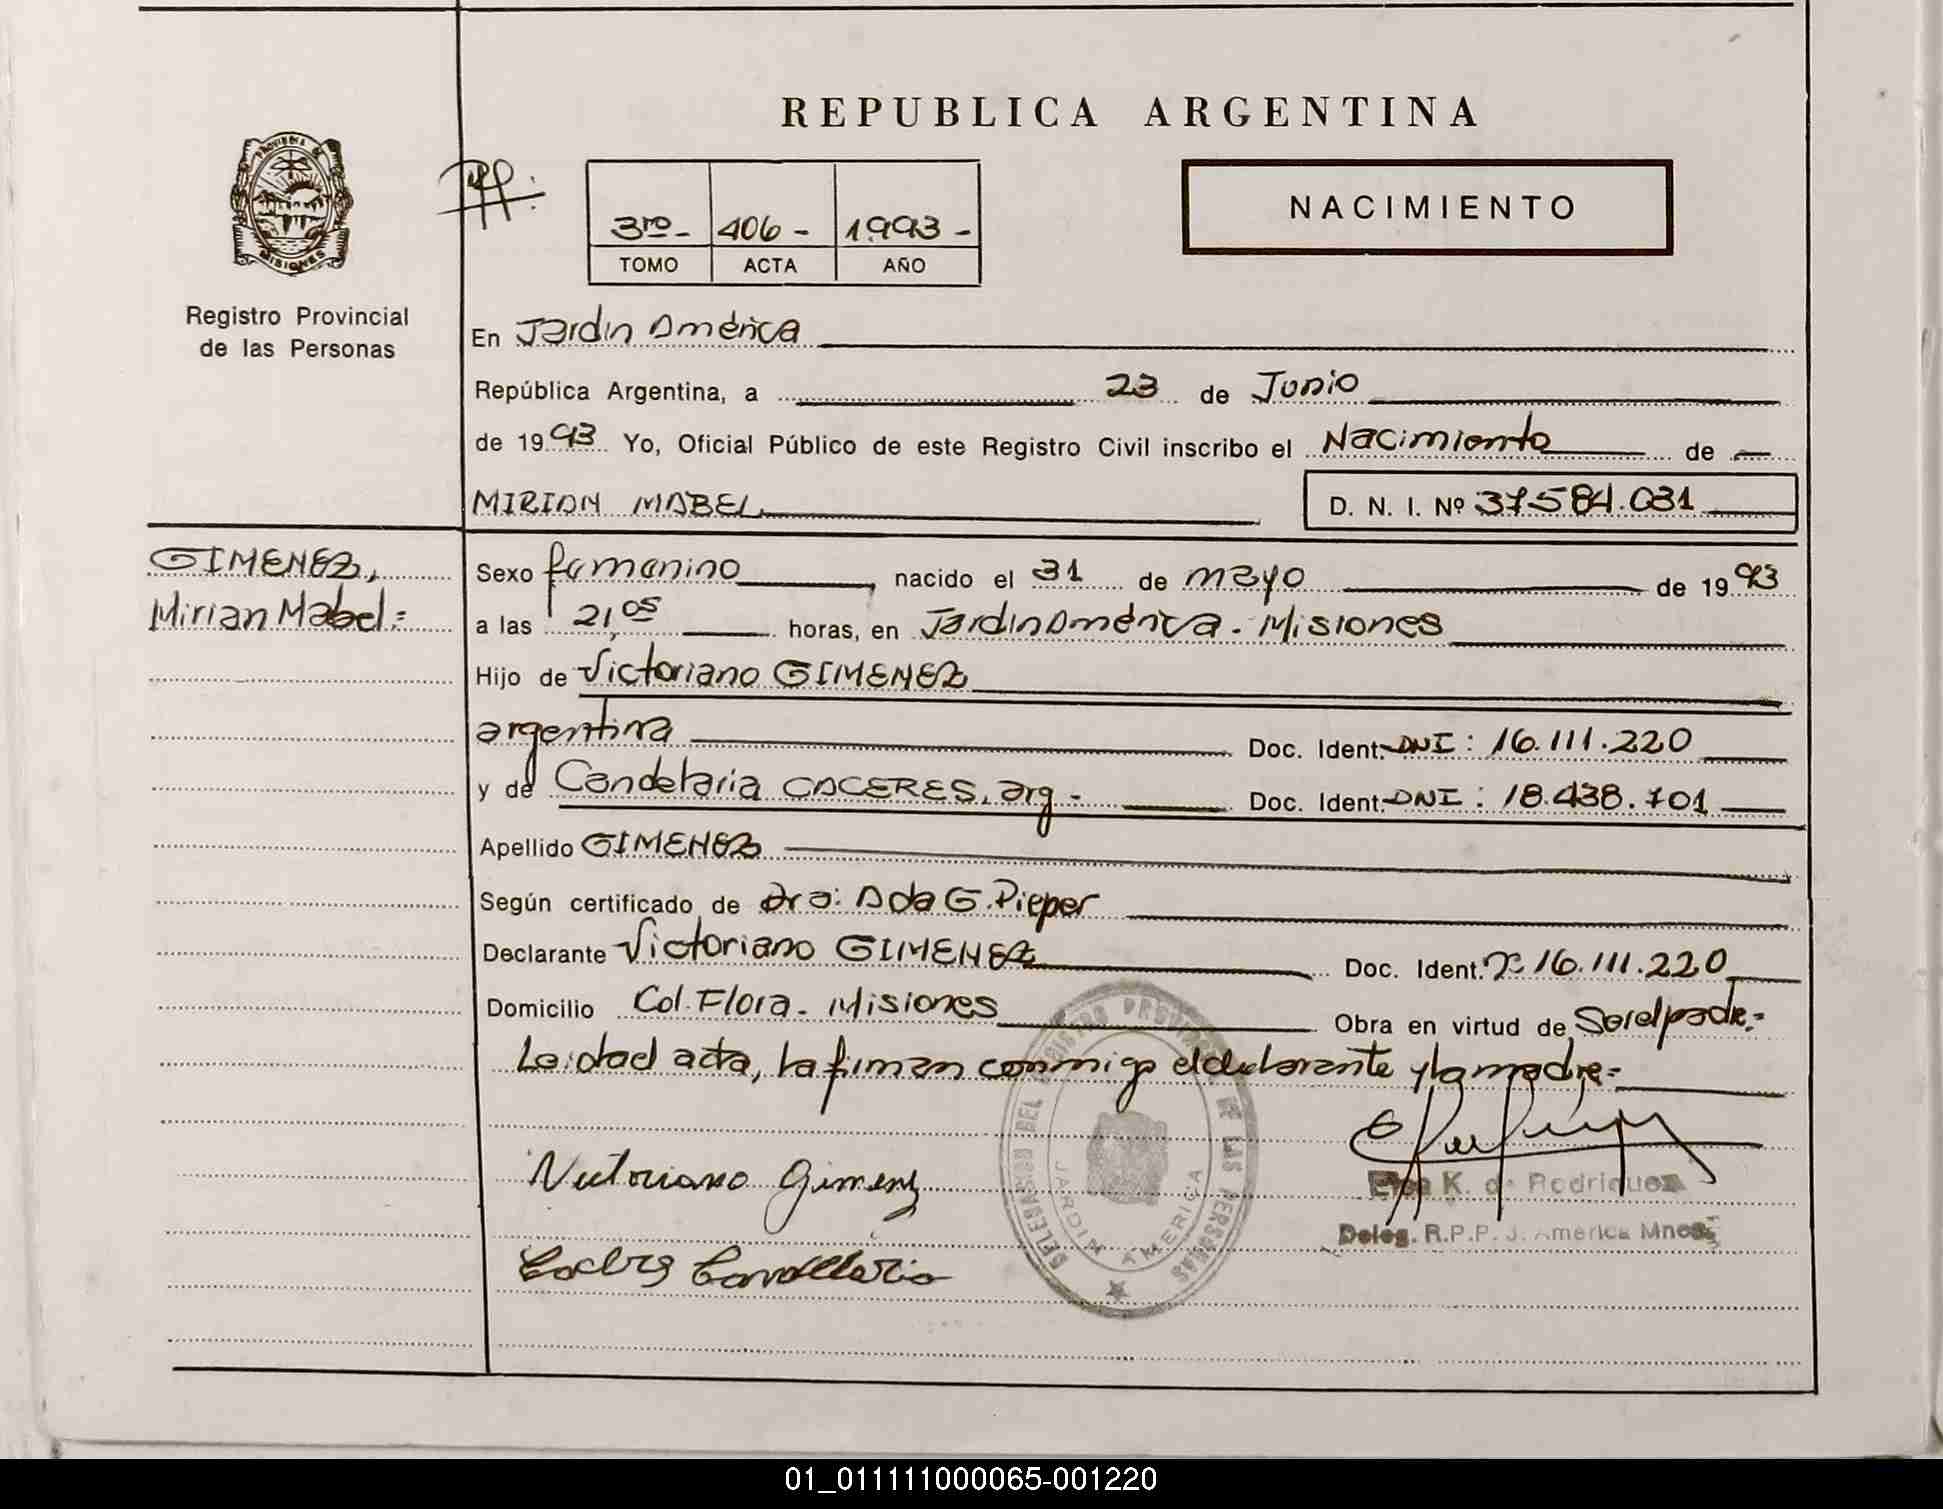 REPUBLICA ARGENTINA
PROVINCIA DE
MISIONES
Registro Provincial
de las Personas
3ro- 406 - 1.993 -
TOMO ACTA AÑO
NACIMIENTO
En Jardin América
República Argentina, a 23 de Junio
de 1993 Yo, Oficial Público de este Registro Civil inscribo el Nacimiento de
MIRIAN MABEL D. N. I. Nº 37.584.031
GIMENEZ,
Mirian Mabel=
Sexo femenino, nacido el 31 de mayo de 1993
a las 21,05 horas, en Jardin América - Misiones
Hijo de Victoriano GIMENEZ
argentina Doc. Ident. DNI: 16.111.220
y de Candelaria CACERES, arg - Doc. Ident. DNI: 18.438.701
Apellido GIMENEZ
Según certificado de Dra: Ada G. Pieper
Declarante Victoriano GIMENEZ Doc. Ident. 16.111.220
Domicilio Col. Flora - Misiones Obra en virtud de Ser el padre.=
Leidad acta, la firman conmigo el declarante y la madre=
Victoriano Gimenz
DELEGACION DEL REGISTRO PROVINCIAL DE LAS PERSONAS
JARDIN AMERICA
K. de Rodriguez
Deleg. R.P.P. J. America Mnes.
01_011111000065-001220